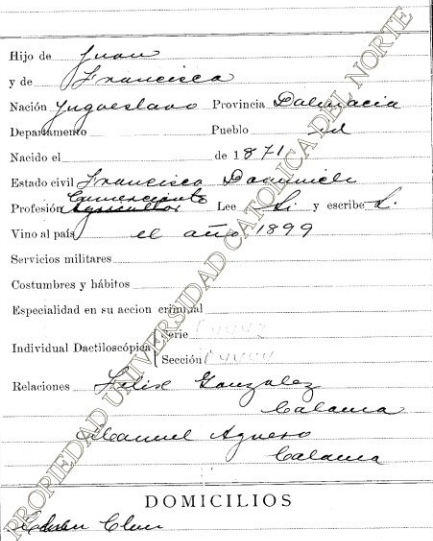 Hijo de Juan
y de Francisca
Nación Yugoeslavo Provincia Dalmacia
Departamento Pueblo id
Nacido el de 1871
Estado civil Francisca
Comerciante
Profesión Agricultor Lee Si y escribe Si
Vino al país el año 1899
Servicios militares
Costumbres y hábitos
Especialidad en su accion criminal
Individual Dactiloscópica Serie
Sección
Relaciones Felix Gonzalez
Calama
Manuel Aguero
Calama
DOMICILIOS
PROPIEDAD UNIVERSIDAD CATOLICA DEL NORTE